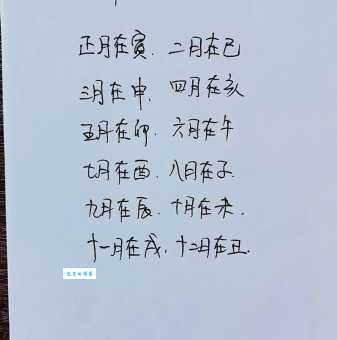 正月在寅. 二月在巳
三月在申. 四月在亥
五月在卯. 六月在午
七月在酉. 八月在子.
九月在辰. 十月在未.
十一月在戌, 十二月在丑.